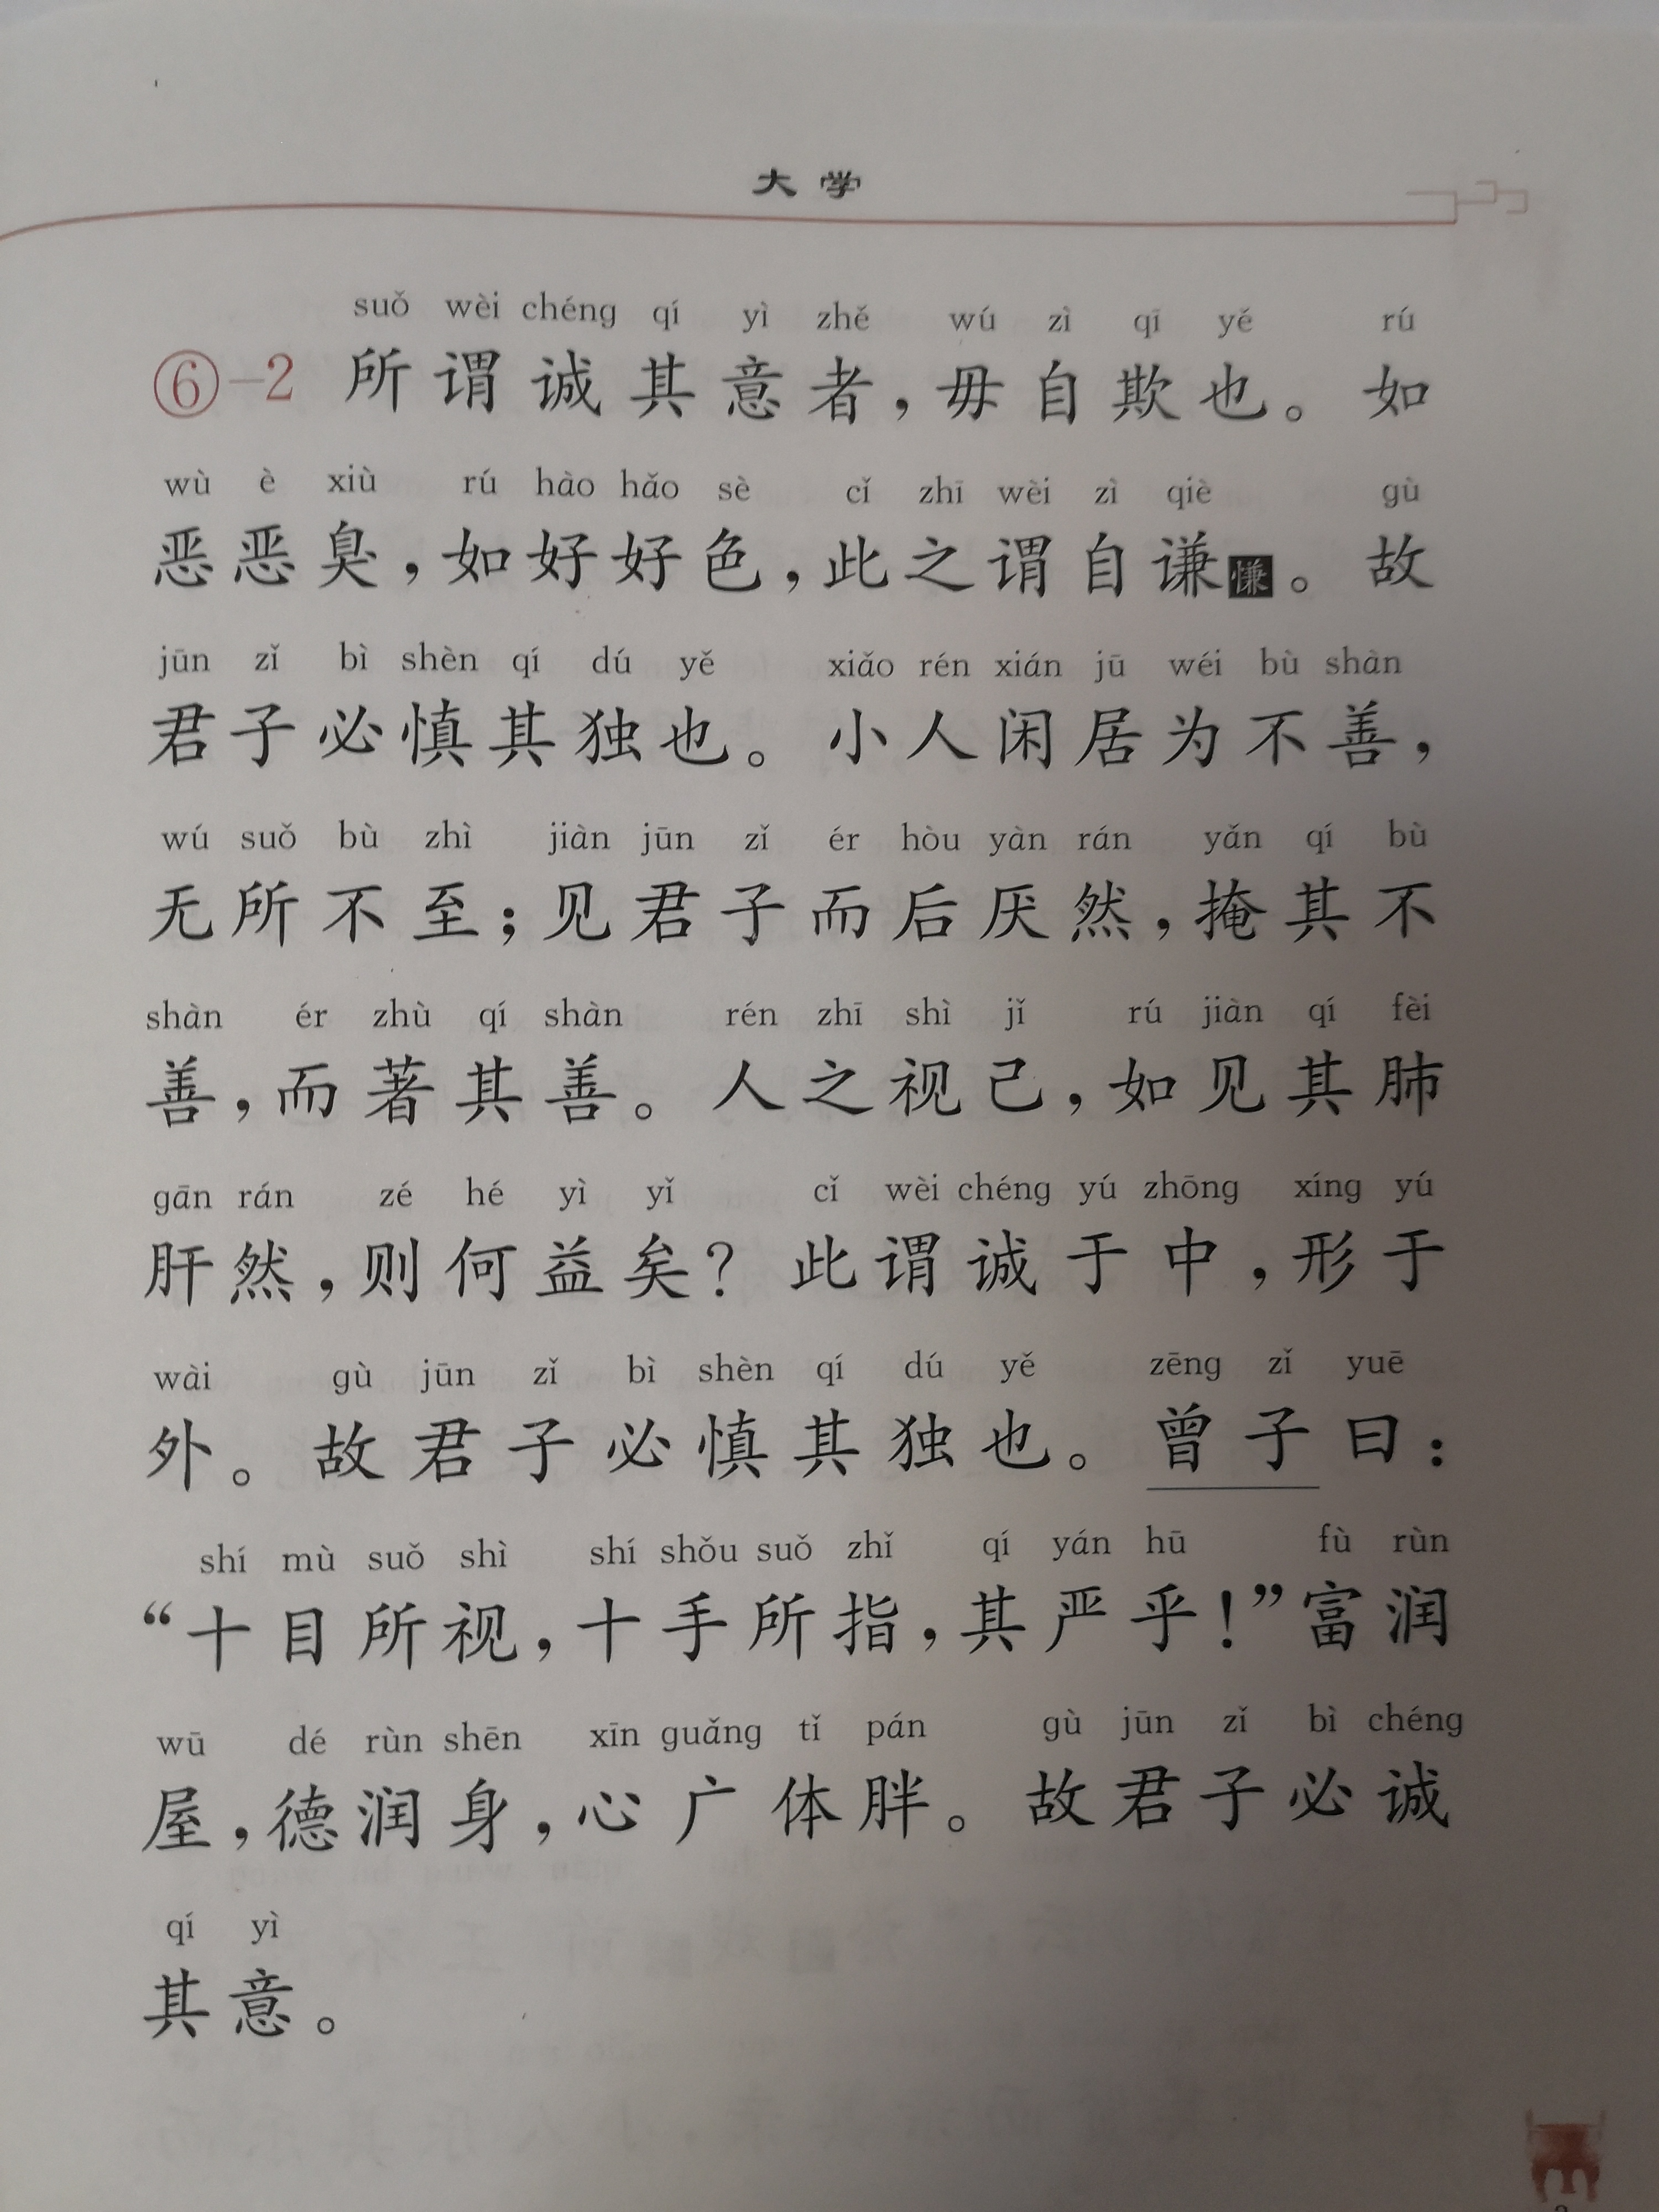 大学
suǒ wèi chéng qí yì zhě wú zì qī yě rú
⑥-2 所谓诚其意者，毋自欺也。如
wù è xiù rú hào hǎo sè cǐ zhī wèi zì qiè gù
恶恶臭，如好好色，此之谓自谦慊。故
jūn zǐ bì shèn qí dú yě xiǎo rén xián jū wéi bù shàn
君子必慎其独也。小人闲居为不善，
wú suǒ bù zhì jiàn jūn zǐ ér hòu yàn rán yǎn qí bù
无所不至；见君子而后厌然，掩其不
shàn ér zhù qí shàn rén zhī shì jǐ rú jiàn qí fèi
善，而著其善。人之视己，如见其肺
gān rán zé hé yì yǐ cǐ wèi chéng yú zhōng xíng yú
肝然，则何益矣？此谓诚于中，形于
wài gù jūn zǐ bì shèn qí dú yě zēng zǐ yuē
外。故君子必慎其独也。曾子曰：
shí mù suǒ shì shí shǒu suǒ zhǐ qí yán hū fù rùn
“十目所视，十手所指，其严乎！”富润
wū dé rùn shēn xīn guǎng tǐ pán gù jūn zǐ bì chéng
屋，德润身，心广体胖。故君子必诚
qí yì
其意。